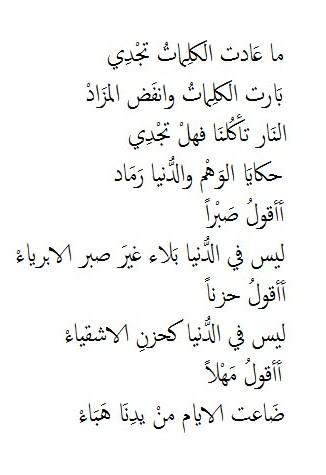 ما عَادت الكَلِماتُ تجْدِي
بَارت الكَلِماتُ وانفَض المزَادْ
النَار تأكُلنَا فهلْ تجْدِي
حكايَا الوَهْم والدُّنيا رَمَاد
أأقولُ صَبْراً
ليس في الدُّنيا بَلاء غيرَ صبر الابرياءْ
أأقولُ حزناً
ليس في الدُّنيا كحزنِ الاشقياءْ
أأقولُ مَهْلاً
ضَاعت الايام منْ يدِنَا هَبَاءْ